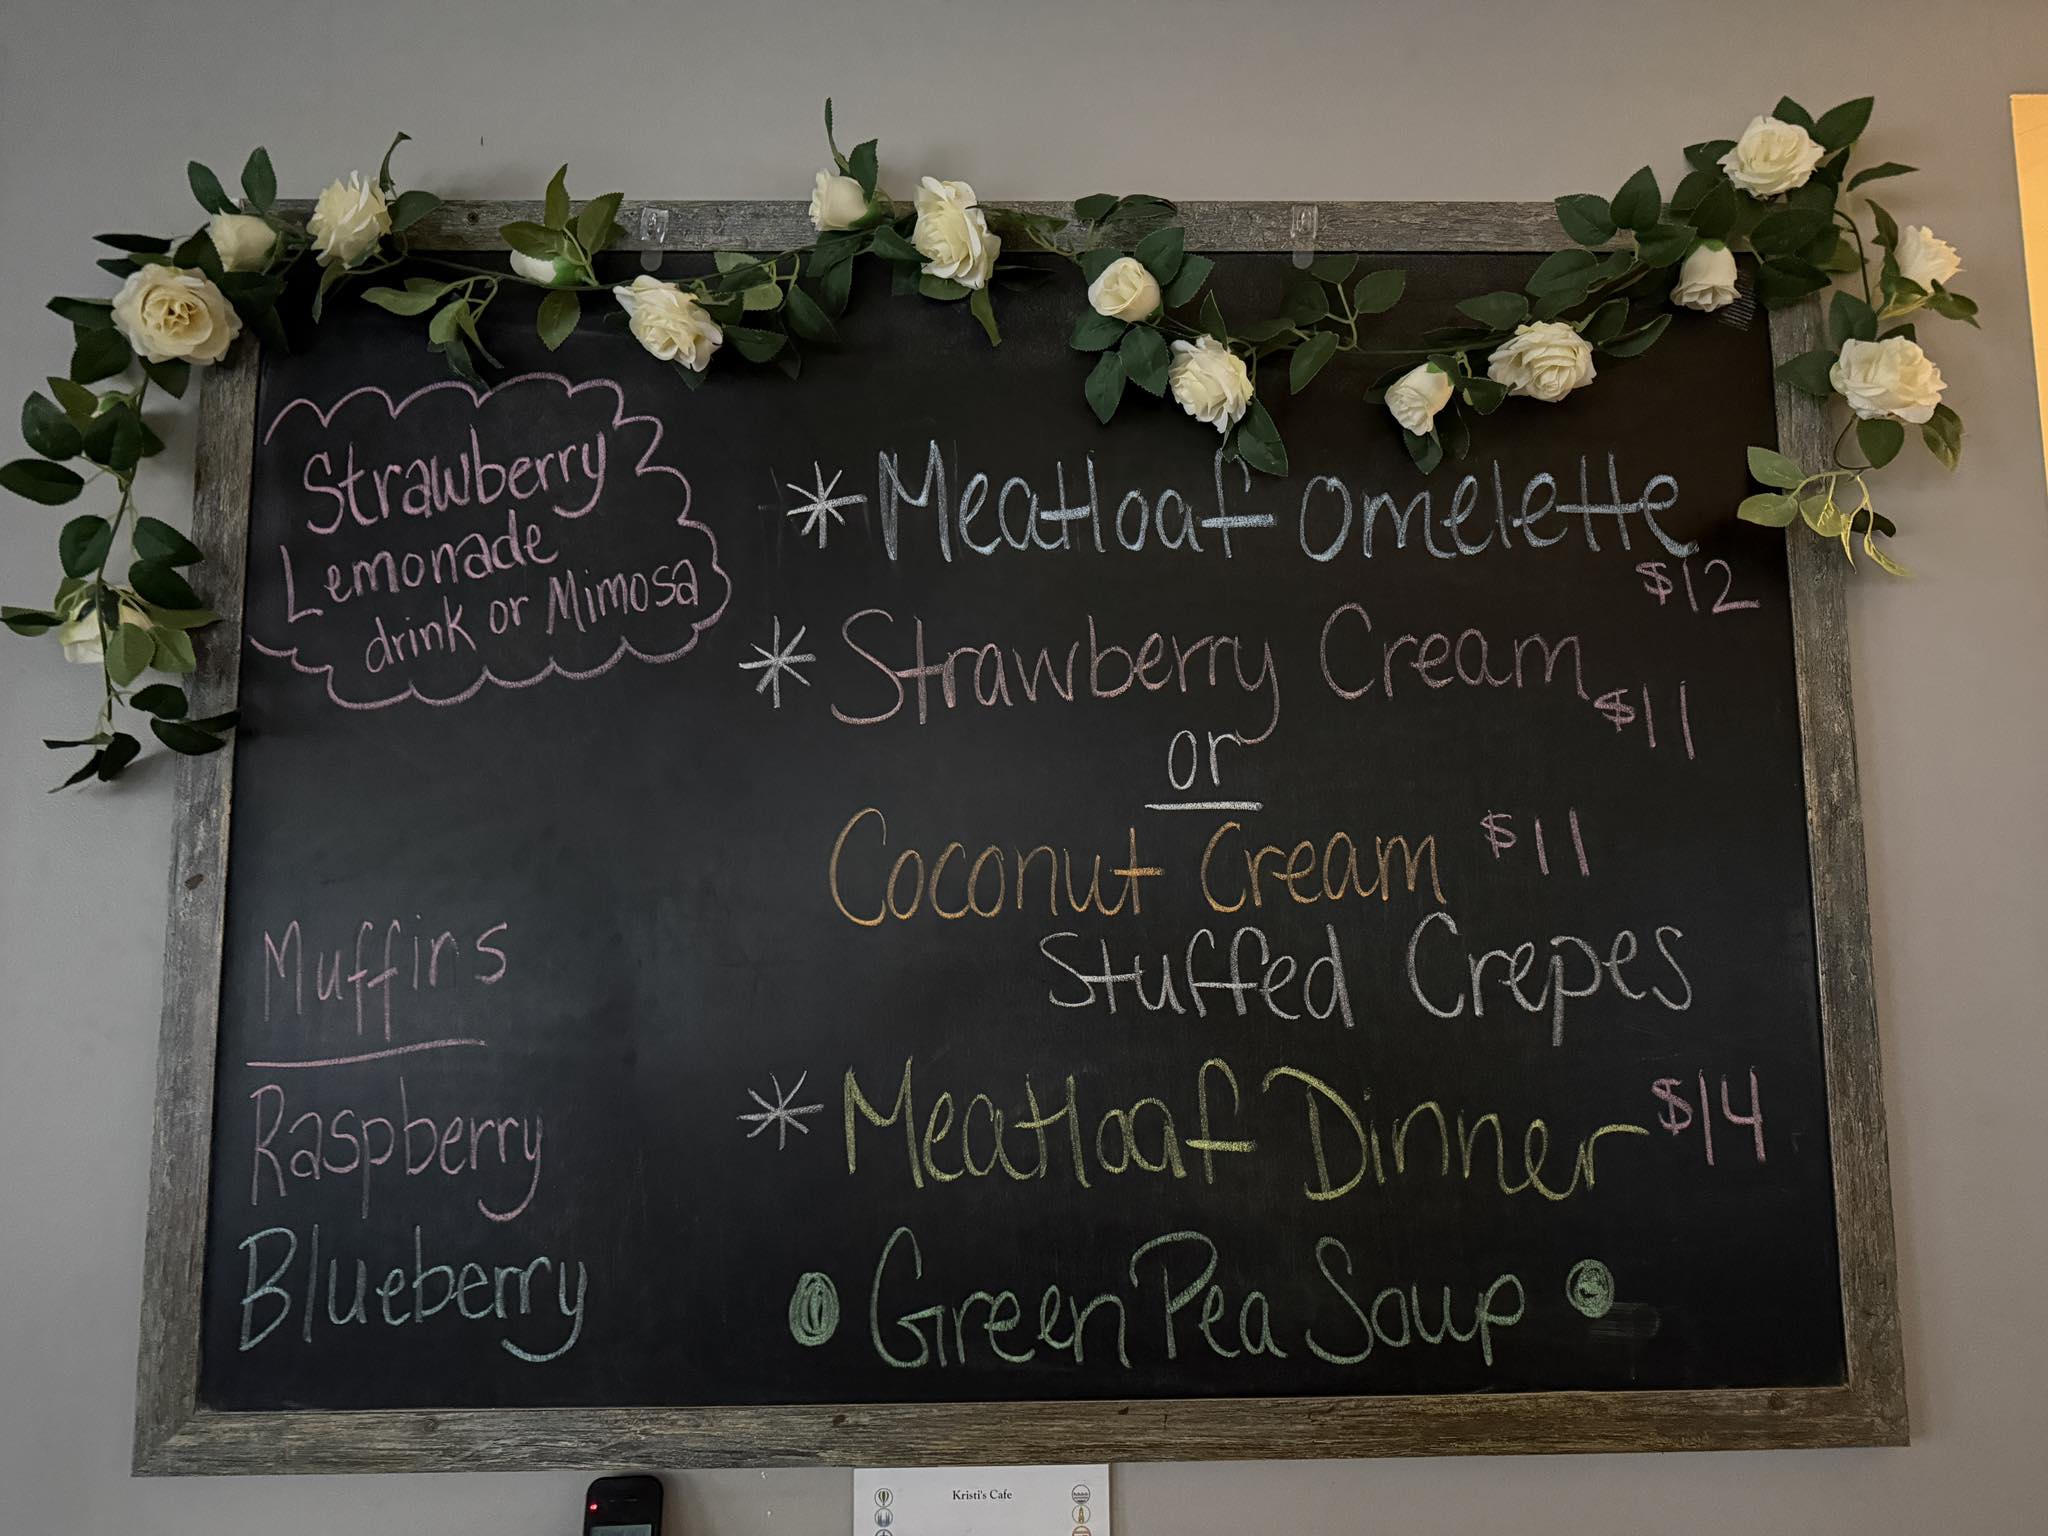 Strawberry
Lemonade
drink or Mimosa
Muffins
Raspberry
Blueberry
*Meatloaf omelette
$12
*Strawberry Cream
$11
or
Coconut Cream $11
Stuffed Crepes
*Meatloaf Dinner $14
Green Pea Soup
Kristi's Cafe